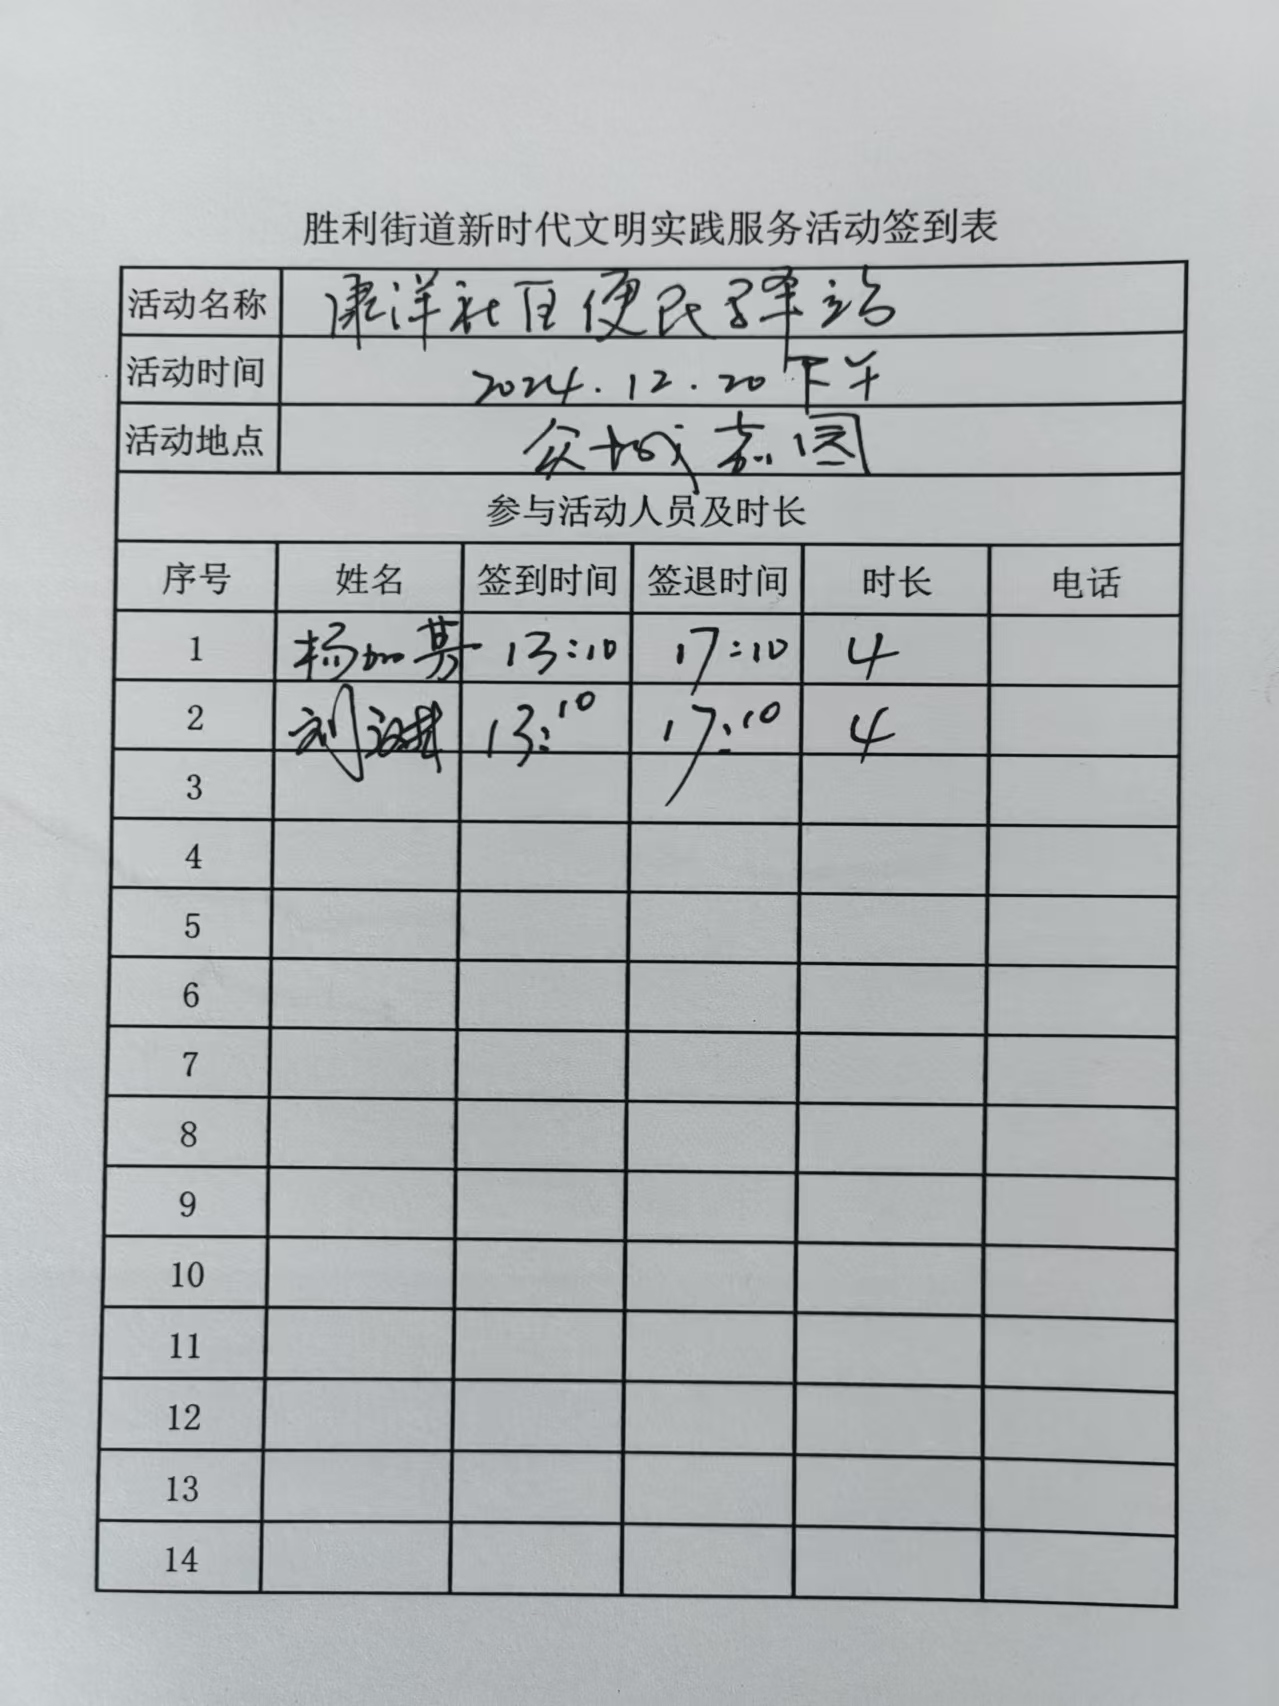 胜利街道新时代文明实践服务活动签到表
活动名称 康洋社区便民驿站
活动时间 2024.12.20下午
活动地点 众城嘉园
参与活动人员及时长
序号 姓名 签到时间 签退时间 时长 电话
1 杨加 13:10 17:10 4
2 刘 13:10 17:10 4
3
4
5
6
7
8
9
10
11
12
13
14